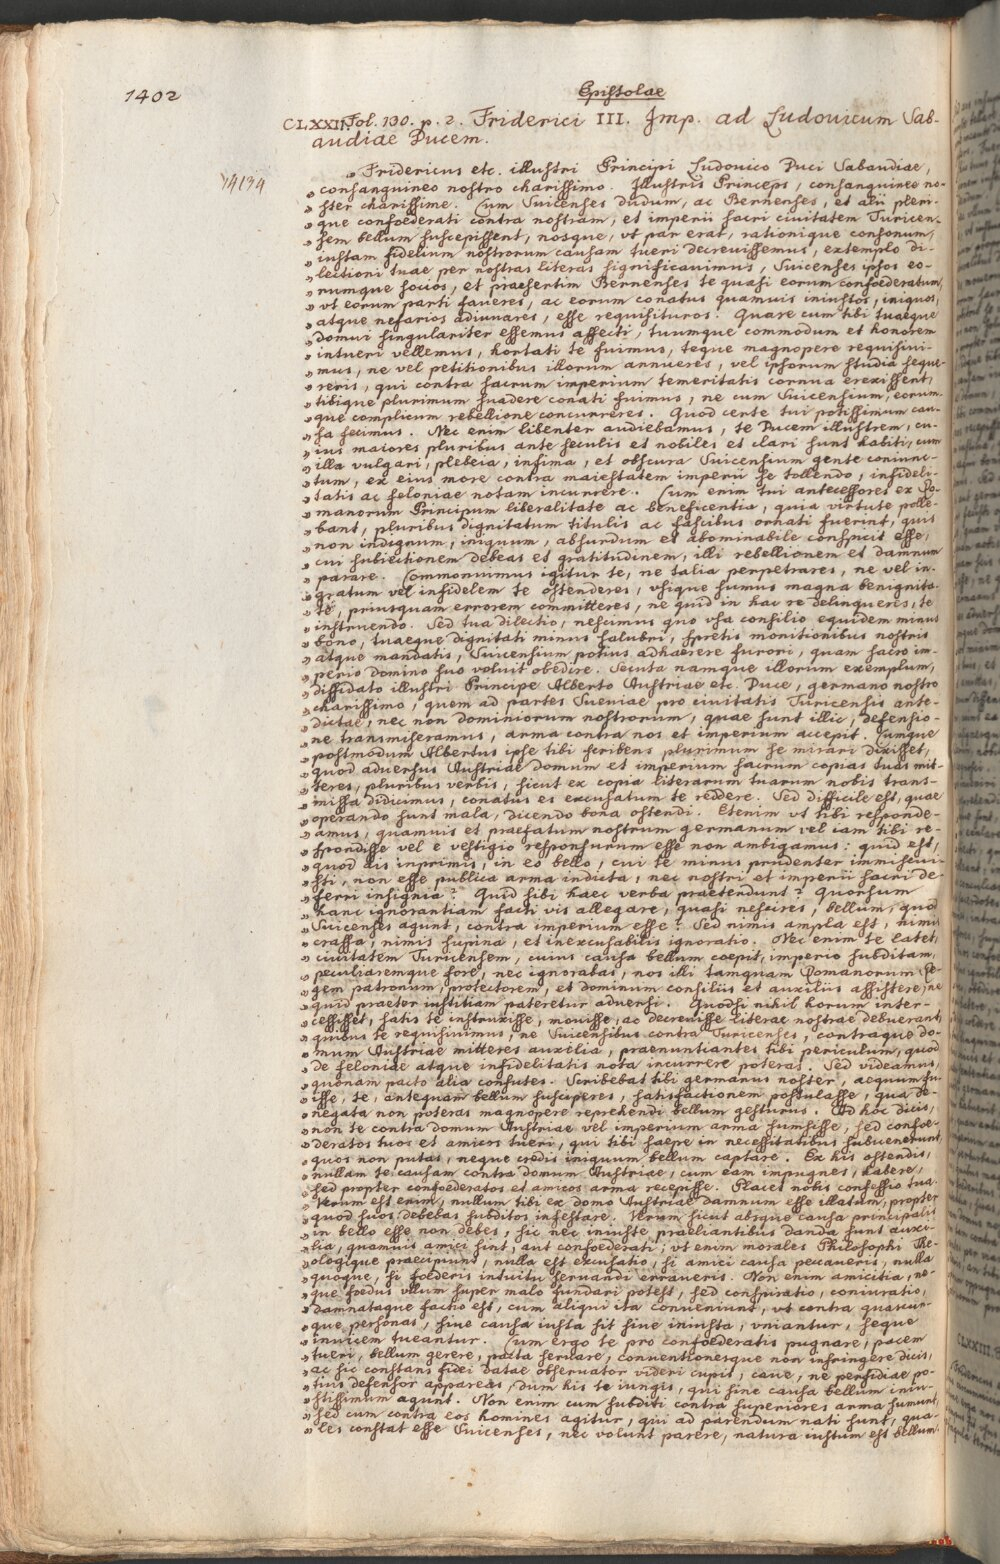 1402
Epistolae
CLXXII. Fol. 130. p. 2. Friderici III. Imp. ad Ludouicum Sab-
audiae Ducem.
14134
„ Fridericus etc. illustri Principi Ludouico Duci Sabaudiae,
„ consanguineo nostro charissimo. Illustris Princeps, consanguinee no-
„ ster charissime. Cum Suicenses dudum, ac Bernenses, et alii pleri-
„ que confoederati contra nostram, et imperii sacri ciuitatem Turicen-
„ sem bellum suscepissent, nosque, vt par erat, rationique consonum,
„ iustam fidelium nostrorum causam tueri decreuissemus, extemplo di-
„ lectioni tuae per nostras literas significauimus, Suicenses ipsos eo-
„ rumque socios, et praesertim Bernenses te quasi eorum confoederatum,
„ vt eorum parti faueres, ac eorum conatus quamuis iniustos, iniquos,
„ atque nefarios adiuuares, esse requisituros. Quare cum tibi tuaeque
„ domui singulariter essemus affecti, tuumque commodum et honorem
„ intueri vellemus, hortati te fuimus, teque magnopere requisiui-
„ mus, ne vel petitionibus illorum annueres, vel ipsorum studia seque-
„ reris, qui contra sacrum imperium temeritatis cornua erexissent,
„ tibique plurimum suadere conati fuimus, ne cum Suicensium, eorum-
„ que complicum rebellione concurreres. Quod certe tui potissimum cau-
„ sa fecimus. Nec enim libenter audiebamus, te Ducem illustrem, cu-
„ ius maiores pluribus ante seculis et nobiles et clari sunt habiti, cum
„ illa vulgari, plebeia, infima, et obscura Suicensium gente coniunc-
„ tum, ex eius more contra maiestatem imperii se tollendo, infideli-
„ tatis ac feloniae notam incurrere. Cum enim tui antecessores ex Ro-
„ manorum Principum liberalitate ac beneficentia, quia virtute polle-
„ bant, pluribus dignitatum titulis ac fascibus ornati fuerint, quis
„ non indignum, iniquum, absurdum et abominabile conspicit esse,
„ cui subiectionem debeas et gratitudinem, illi rebellionem et damnum
„ parare. Commonuimus igitur te, ne talia perpetrares, ne vel in-
„ gratum vel infidelem te ostenderes, vsique sumus magna benignita-
„ te, priusquam errorem committeres, ne quid in hac re delinqueres, te
„ instruendo. Sed tua dilectio, nescimus quo vsa consilio equidem minus
„ bono, tuaeque dignitati minus salubri, spretis monitionibus nostris
„ atque mandatis, Suicensium potius adhaerere furori, quam sacro im-
„ perio domino suo voluit obedire. Secuta namque illorum exemplum,
„ diffidato illustri Principe Alberto Austriae etc. Duce, germano nostro
„ charissimo, quem ad partes Sueuiae pro ciuitatis Turicensis ante-
„ dictae, nec non dominiorum nostrorum, quae sunt illic, defensio-
„ ne transmiseramus, arma contra nos et imperium accepit. Cumque
„ postmodum Albertus ipse tibi scribens plurimum se mirari dixisset,
„ quod aduersus Austriae domum et imperium sacrum copias tuas mit-
„ teres, pluribus verbis, sicut ex copia literarum tuarum nobis trans-
„ missa didicimus, conatus es excusatum te reddere. Sed difficile est, quae
„ operando sunt mala, dicendo bona ostendi. Etenim vt tibi responde-
„ amus, quamuis et praefatum nostrum germanum vel iam tibi re-
„ spondisse vel e vestigio responsurum esse non ambigamus: quid est,
„ quod ais inprimis, in eo bello, cui te minus prudenter immiscui-
„ sti, non esse publica arma indicta, nec nostri et imperii sacri de-
„ ferri insignia? Quid sibi haec verba praetendunt? Quorsum
„ hanc ignorantiam facti vis allegare, quasi nescires, bellum, quod
„ Suicenses agunt, contra imperium esse? Sed nimis ampla est, nimis
„ crassa, nimis supina, et inexcusabilis ignoratio. Nec enim te latet,
„ ciuitatem Turicensem, cuius causa bellum coepit, imperio subditam,
„ peculiaremque fore, nec ignorabas, nos illi tamquam Romanorum Re-
„ gem patronum, protectorem, et dominum consiliis et auxiliis assistere, ne
„ quid praeter iustitiam pateretur aduersi. Quodsi nihil horum inter-
„ cessisset, satis te instruxisse, mouisse, ac decreuisse literae nostrae debuerant,
„ quibus te requisiuimus, ne Suicensibus contra Turicenses, contraque do-
„ mum Austriae mitteres auxilia, praenuntiantes tibi periculum, quod
„ de feloniae atque infidelitatis nota incurrere poteras. Sed videamus,
„ quonam pacto alia confutes. Scribebat tibi germanus noster, aequum fu-
„ isse, te, antequam bellum susciperes, satisfactionem postulasse, qua de-
„ negata non poteras magnopere reprehendi bellum gesturus. Ad hoc dicis,
„ non te contra domum Austriae vel imperium arma sumsisse, sed confoe-
„ deratos tuos et amicos tueri, qui tibi saepe in necessitatibus subuenerunt,
„ quos non putas, neque credis iniquum bellum captare. Ex his ostendis,
„ nullam te causam contra domum Austriae, cum eam impugnes, habere,
„ sed propter confoederatos et amicos arma recepisse. Placet nobis confessio tua.
„ Verum est enim, nullum tibi ex domo Austriae damnum esse illatum, propter
„ quod suos debebas subditos infestare. Verum sicut absque causa principalis
„ in bello esse non debes, sic nec iniuste praeliantibus danda sunt auxi-
„ lia, quamuis amici sint, aut confoederati; vt enim morales Philosophi The-
„ ologique praecipiunt, nulla est excusatio, si amici causa peccaueris, nulla
„ quoque, si foederis intuitu seruandi erraueris. Non enim amicitia, ne-
„ que foedus vllum super malo fundari potest, sed conspiratio, coniuratio,
„ damnataque factio est, cum aliqui ita conueniunt, vt contra quascun-
„ que personas, siue causa iusta sit siue iniusta, vniantur, seque
„ inuicem tueantur. Cum ergo te pro confoederatis pugnare, pacem
„ tueri, bellum gerere, pacta seruare, conuentionesque non infringere dicis,
„ ac sic constans fidei datae obseruator videri cupis, caue, ne perfidiae po-
„ tius defensor appareas, dum his te iungis, qui sine causa bellum iniu-
„ stissimum agunt. Non enim cum subditi contra superiores arma sumunt,
„ sed cum contra eos homines agitur, qui ad parendum nati sunt, qua-
„ les constat esse Suicenses, nec volunt parere, natura iustum est bellum.
CLXXIII.